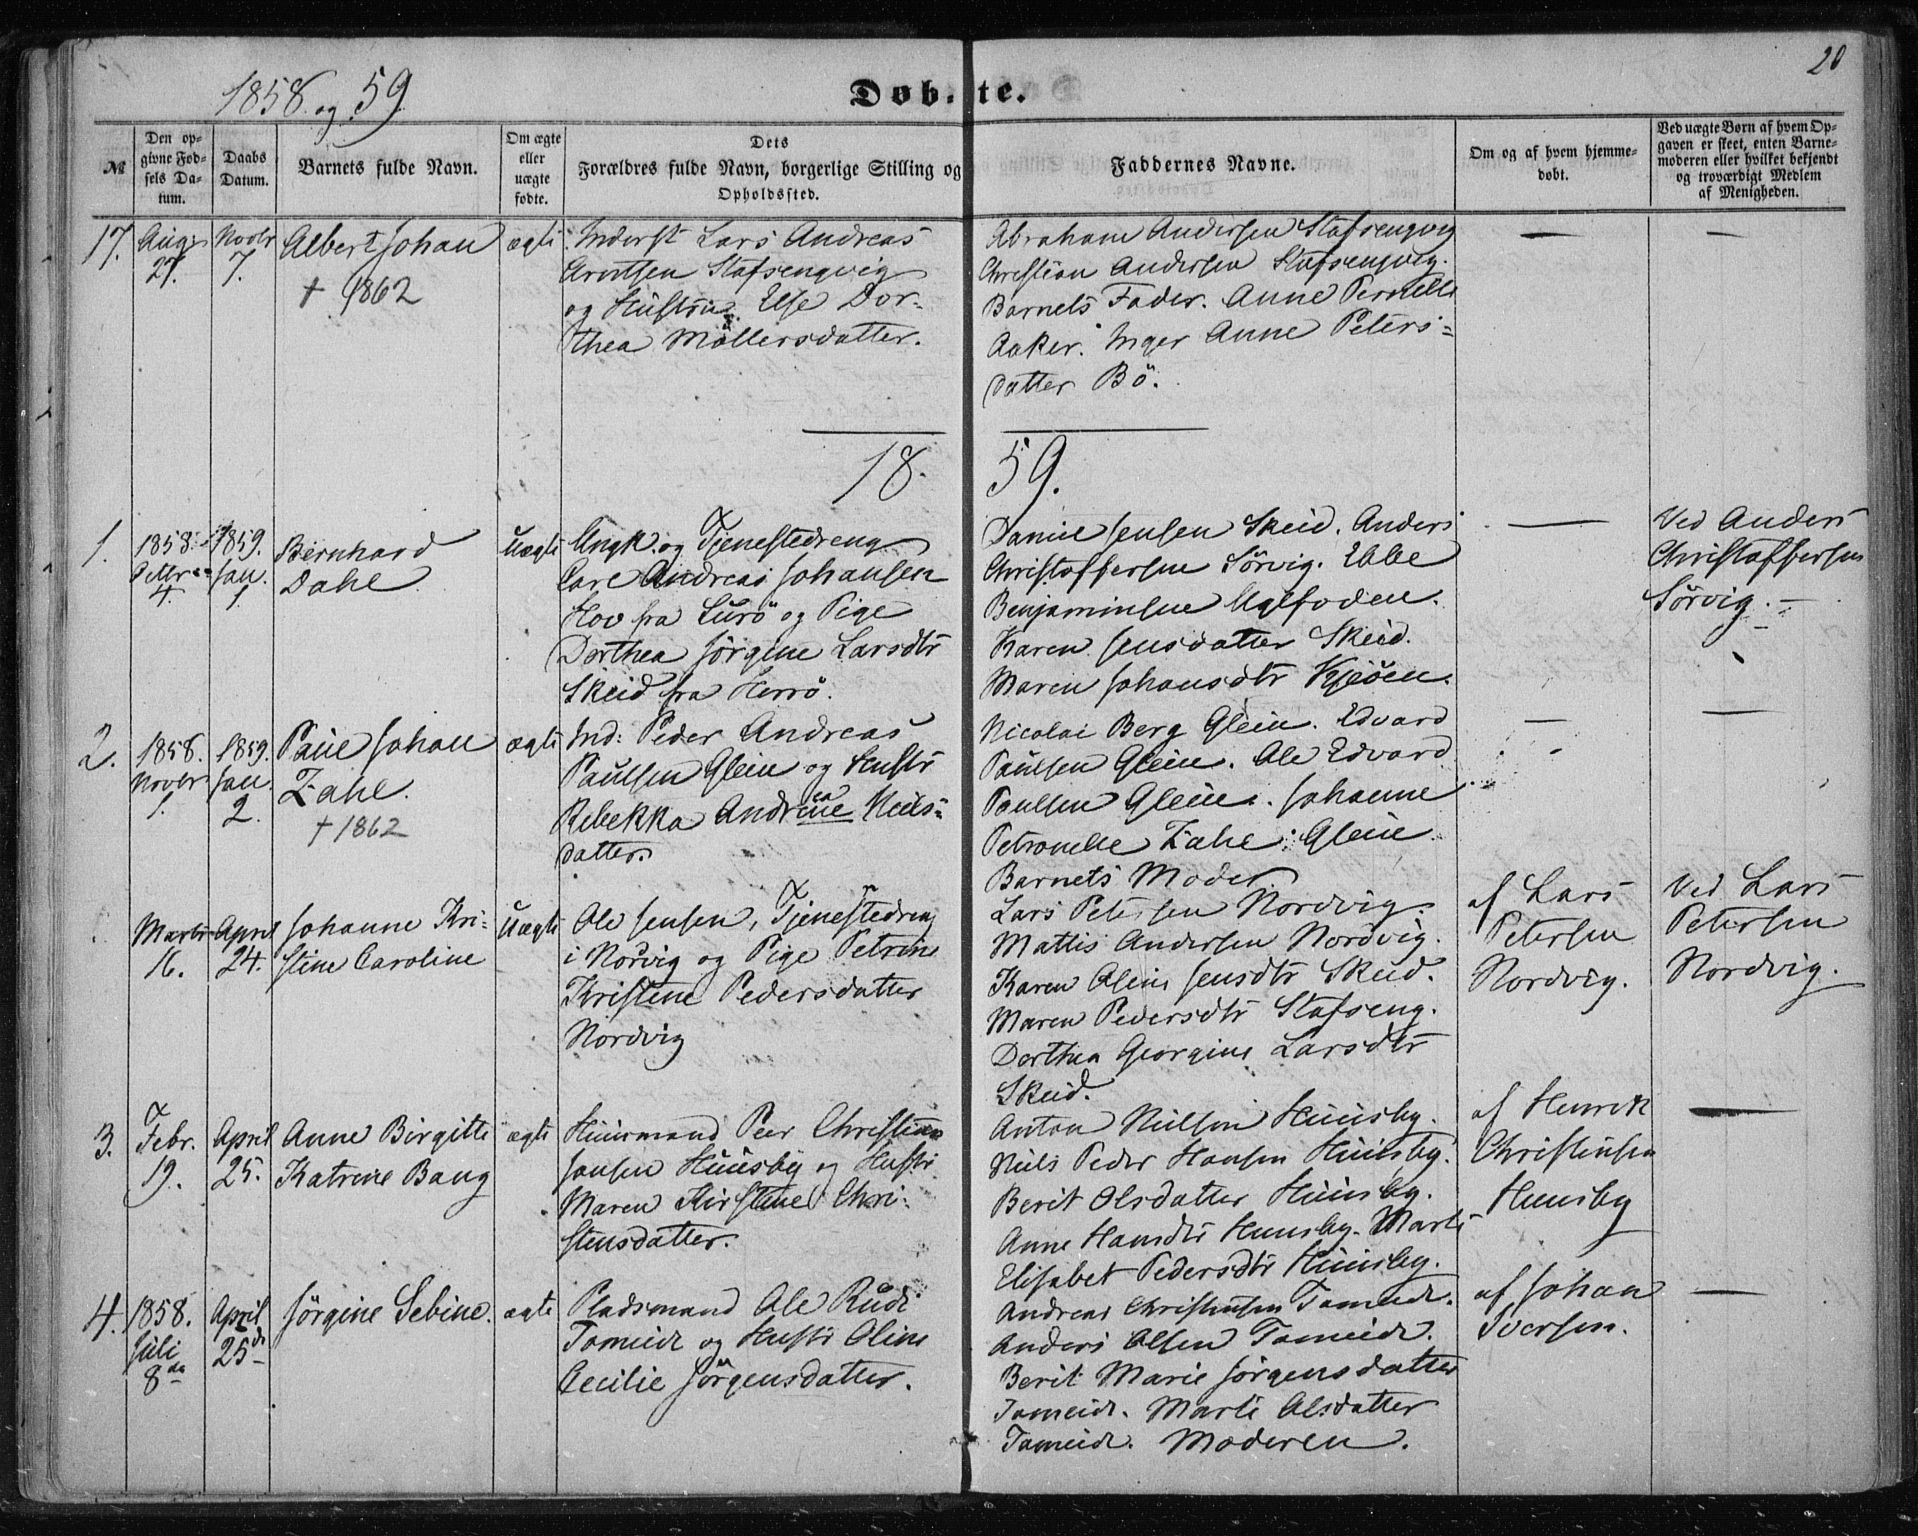 20
1858. og 59.
Døbte.
№
Den opgivne Fødsels Datum.
Daabs Datum.
Barnets fulde Navn.
Om ægte eller uægte fødte.
Dets Forældres fulde Navn, borgerlige Stilling og Opholdssted.
Faddernes Navne.
Om og af hvem hjemmedøbt.
Ved uægte Børn af hvem Opgaven er skeet, enten Barnemoderen eller hvilket bekjendt og troværdigt Medlem af Menigheden.
17.
Novbr
7.
Albert Johan
† 1862
ægte
Inderst Lars Andreas
Arntsen Stafsengvig
og Hustru Else Dor-
thea Möllersdatter.
Abraham Andersen Stafsengvig
Christian Andersen Stafsengvig.
Barnets Fader. Anne Pernelle
Aaker. Inger Anne Peters-
datter Bö.
—
—
18 59.
1.
1858.
4.
1859.
Jan.
1.
Bernhard
Dahl.
Uægte
Ungk. og Tjenestedreng
Carl Andreas Johansen
Hov fra Lurö og Pige
Dorthea Jörgine Larsdtr
Skeid fra Herrö.
Daniel Jensen Skeid. Anders
Christoffersen Sörvig. Ebbe
Benjaminsen
Karen Jensdatter Skeid.
Maren Johansdtr
—
Ved Anders
Christoffersen
Sörvig. —
2.
1858.
Novbr
1.
1859.
Jan.
2.
Paul Johan
Zahl.
† 1862
ægte
Ind: Peder Andreas
Paulsen Glein og Hustr
Rebekka Andrine Niels-
datter.
Nicolai Berg Glein. Edvard
Paulsen Glein. Ole Edvard
Paulsen Glein. Johanne
Petronelle Zahl. Glein
Barnets Moder
—
—
Marts
16.
April
24.
Johanne Kri-
stine Caroline
Uægte
Ole Jensen, Tjenestedreng
i Norvig og Pige Petrine
Kristine Pedersdatter
Nordvig
Lars Petersen Nordvig.
Mattis Andersen Nordvig.
Karen Jensdtr Skeid.
Maren Pedersdtr Stafseng.
Dorthea Georgine Larsdtr
Skeid.
af Lars
Petersen
Nordvig.
Ved Lars
Petersen
Nordvig.
3.
Febr.
19.
April
25.
Anne Birgitte
Katrine Bang
ægte
Huusmand Peer Christian
Jansen Huusby og Hustr
Maren Kirstine Chri-
stensdatter.
Anton Nielsen Huusby.
Niels Peder Hansen Huusby.
Berit Olsdatter Huusby.
Anne Hansdtr Huusby. Marte
Elisabet Pedersdtr Huusby.
af Henrik
Christensen
Huusby
—
4.
1858.
Juli
8de
April
25de
Jörgine Sebine.
ægte
Pladsmand Ole Rudi
Tomeide og Hustr Oline
Cecilie Jörgensdatter.
Andreas Christensen Tomeide.
Anders Olsen Tomeide.
Berit Marie Jörgensdatter
Tomeide. Marte Olsdatter
Tomeide. Moderen.
af Johan
Iversen.
—